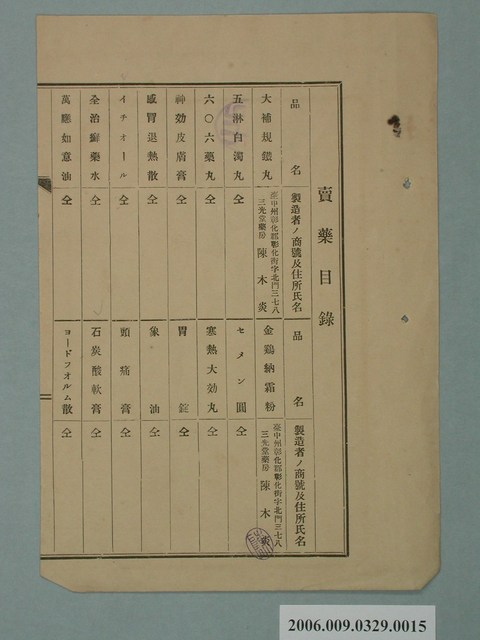 賣藥目錄
品名
製造者ノ商號及住所氏名
品名
製造者ノ商號及住所氏名
大補規銀丸
臺中州彰化郡彰化街字北門三七八
三光堂藥房 陳木炎
金鷄納霜粉
臺中州彰化郡彰化街字北門三七八
三光堂藥房 陳木炎
五淋白濁丸 仝
セメン圓 仝
六〇六藥丸 仝
寒熱大効丸 仝
神効皮膚膏 仝
胃錠 仝
感冒退熱散 仝
象油 仝
イチオール 仝
頭痛膏 仝
全治癬藥水 仝
石炭酸軟膏 仝
萬應如意油 仝
ヨードフオルム散 仝
2006.009.0329.0015